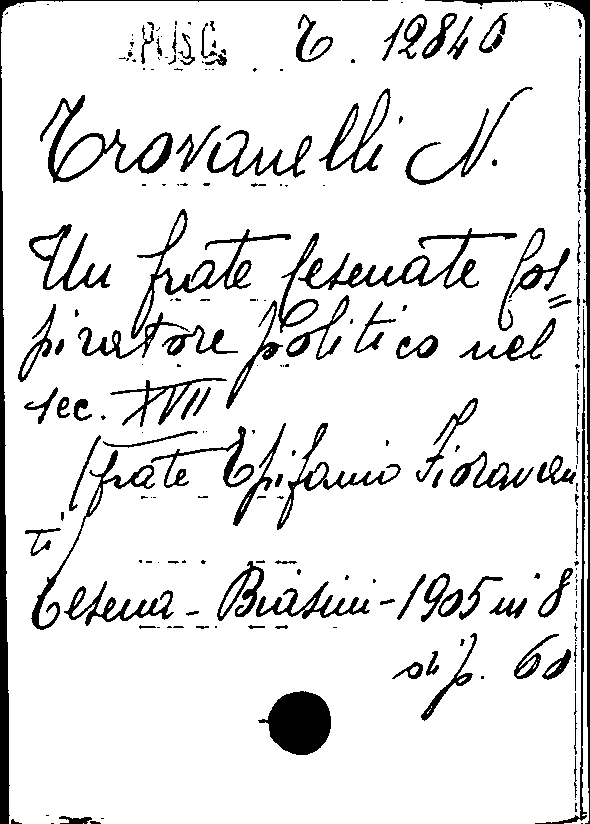 OPUSC. T. 12840
Trovanelli N.
Un frate Cesenate Cos=
piratore politico nel
sec. XVII
(frate Epifanio Fioravan
ti)
Cesena - Biasini - 1905 in 8
di p. 60